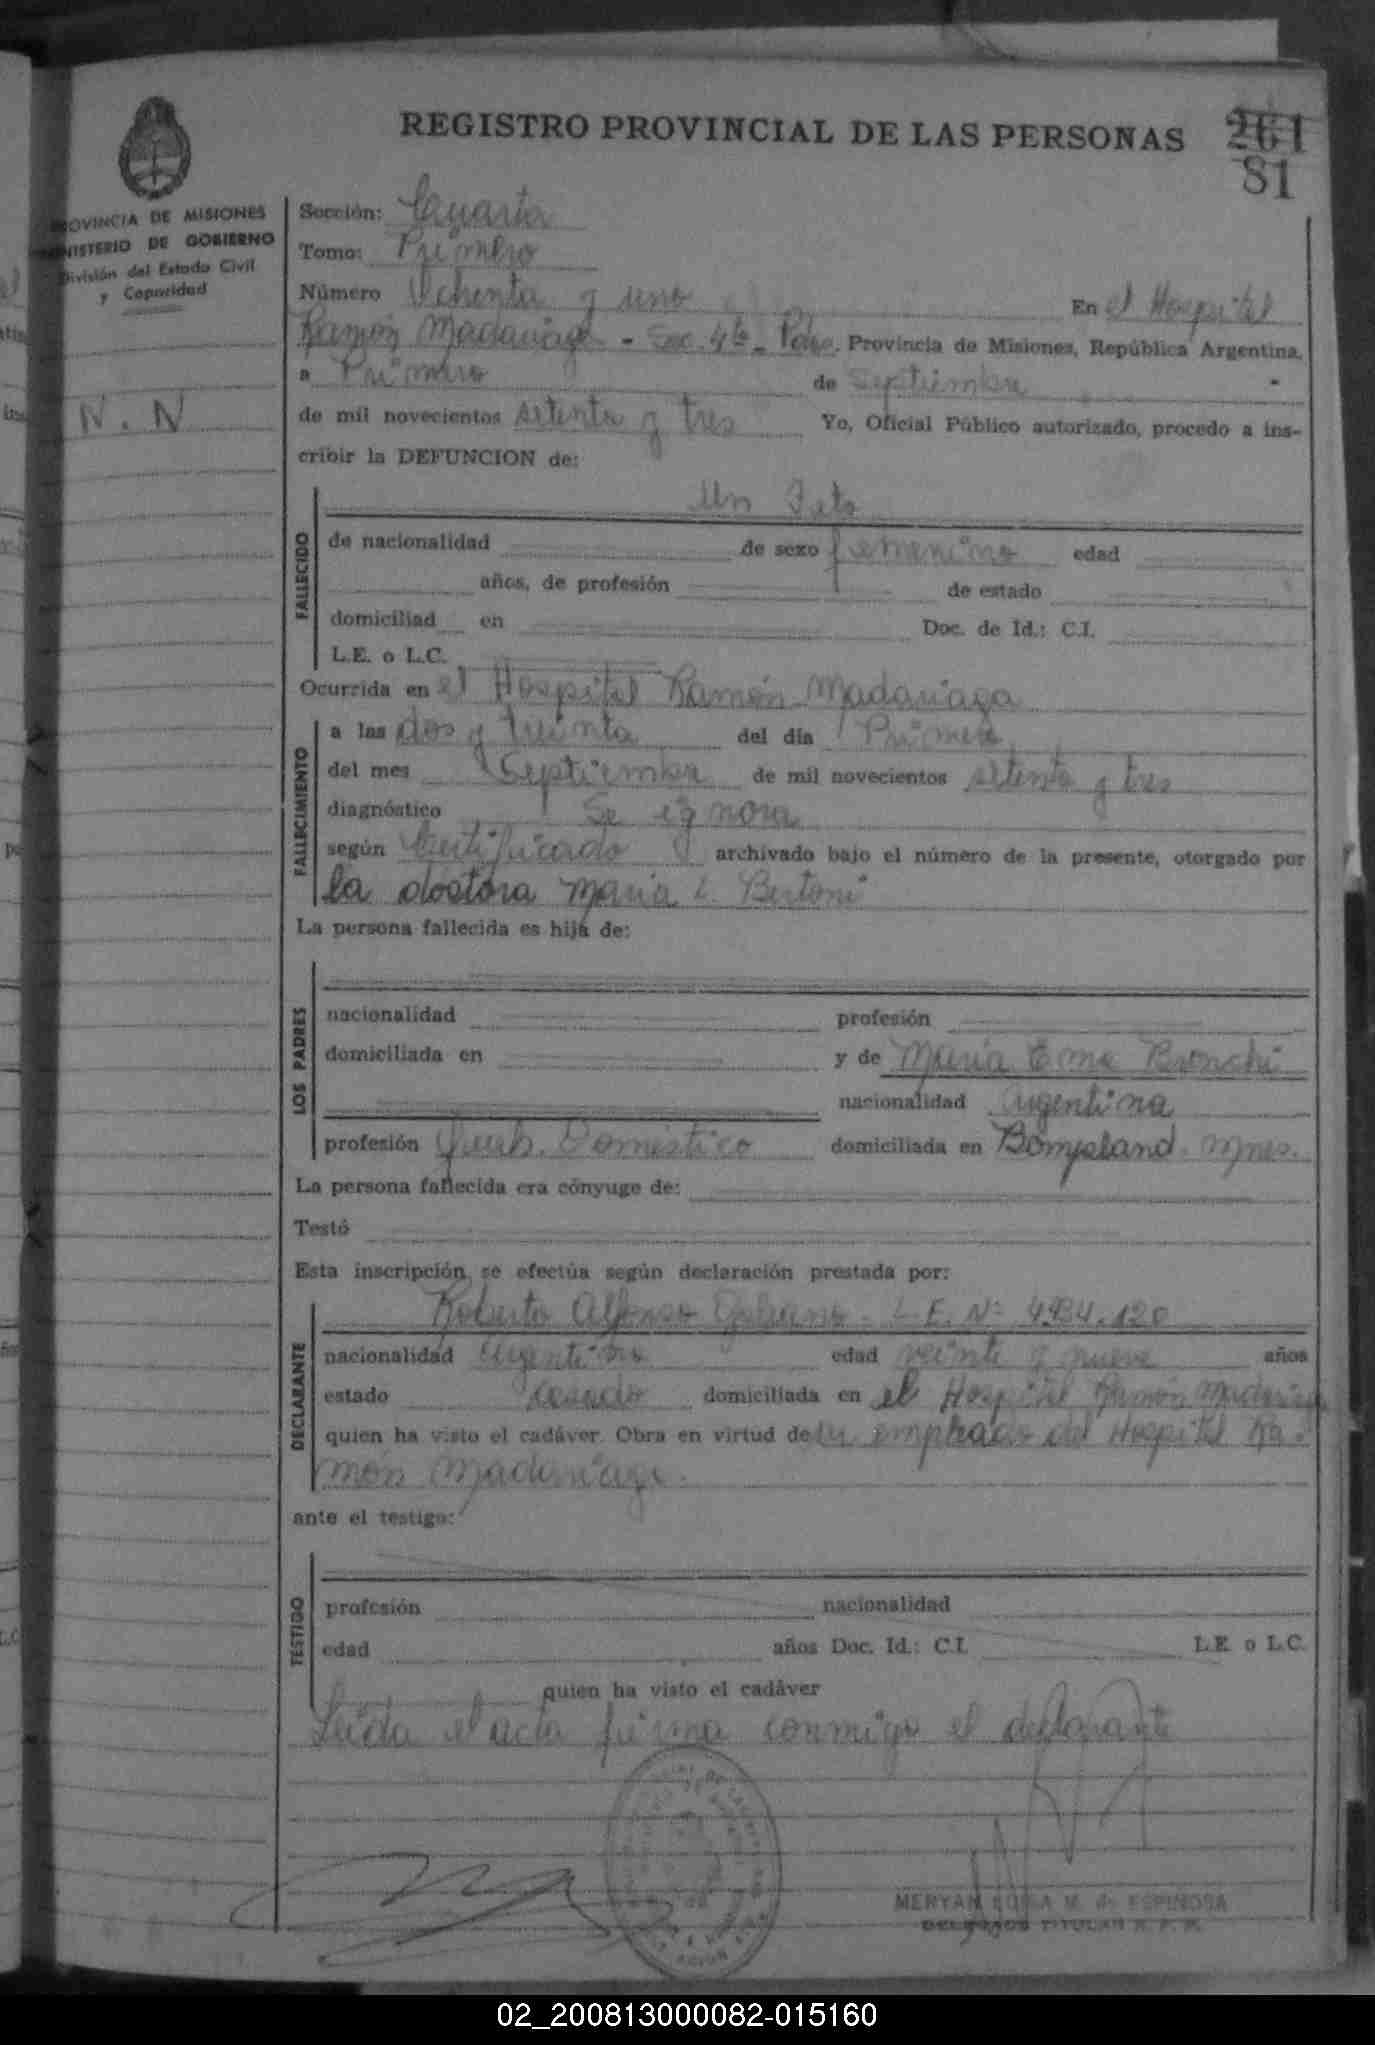 REGISTRO PROVINCIAL DE LAS PERSONAS 261
81
PROVINCIA DE MISIONES
MINISTERIO DE GOBIERNO
División del Estado Civil
y Capacidad
N. N
Sección: Cuarta
Tomo: Primero
Número Ochenta y uno En el Hospital
Ramón Madariaga - Sec. 4ta - Pdas. Provincia de Misiones, República Argentina,
a Primero de Septiembre
de mil novecientos setenta y tres Yo, Oficial Público autorizado, procedo a ins-
cribir la DEFUNCION de:
FALLECIDO
Un Feto
de nacionalidad de sexo femenino edad
años, de profesión de estado
domiciliad en Doc. de Id.: C.I.
L.E. o L.C.
Ocurrida en el Hospital Ramón Madariaga
FALLECIMIENTO
a las dos y treinta del día Primero
del mes Septiembre de mil novecientos setenta y tres
diagnóstico Se ignora
según Certificado archivado bajo el número de la presente, otorgado por
la doctora Maria L. Bertoni
La persona fallecida es hija de:
LOS PADRES
nacionalidad profesión
domiciliada en y de Maria Ema
nacionalidad Argentina
profesión Queh. Doméstico domiciliada en Bompland. Mnes.
La persona fallecida era cónyuge de:
Testó
Esta inscripción se efectúa según declaración prestada por:
DECLARANTE
Roberto Alfonso - L.E. Nº
nacionalidad Argentino edad veinte y nueve años
estado casado domiciliada en el Hospital Ramón Madariaga
quien ha visto el cadáver. Obra en virtud de ser empleado del Hospital Ra-
món Madariaga.
ante el testigo:
TESTIGO
profesión nacionalidad
edad años Doc. Id.: C.I. L.E. o L.C.
quien ha visto el cadáver
Leída el acta firma conmigo el declarante
MERYAN LUISA M. de ESPINOSA
DELEGADOS TITULAR R. P. P.
02_200813000082-015160